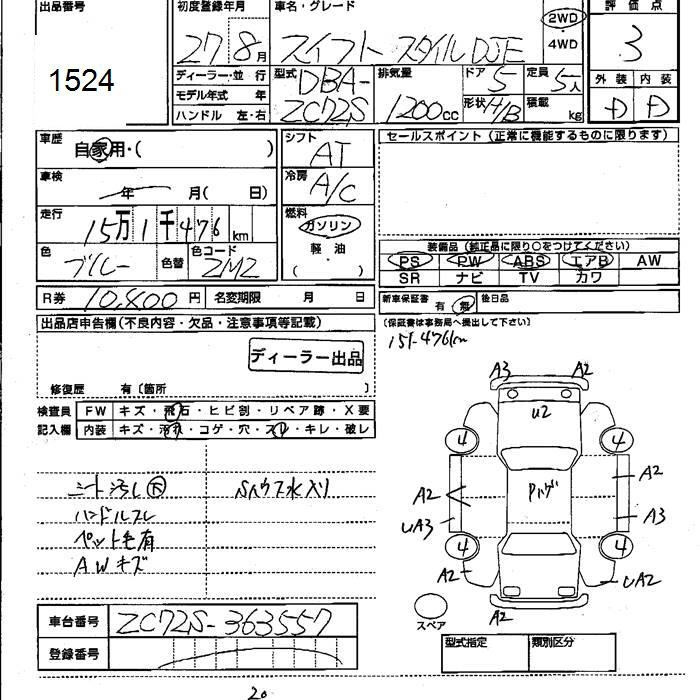 出品番号
1524
初度登録年月
27 8月
車名・グレード
スイフト スタイルDJE
2WD
・
4WD
評価点
3
ディーラー・並行
モデル年式 年
ハンドル 左・右
型式
DBA-
ZC72S
排気量
1200cc
ドア
5
形状 H/B
定員
5人
積載
kg
外装 内装
D D
車歴
自家用・( )
車検
年 月( 日)
走行
15万1千476km
色
ブルー
色替
色コード
ZMZ
シフト
AT
冷房
A/C
燃料
ガソリン
軽・油
( )
セールスポイント (正常に機能するものに限ります)
装備品 (純正品に限り○をつけてください)
PS PW ABS エアB AW
SR ナビ TV カワ
R券 10,400円 名変期限 月 日
新車保証書 有 無 後日品
(保証書は事務局へ提出して下さい)
151-476km
出品店申告欄(不良内容・欠品・注意事項等記載)
ディーラー出品
修復歴 有〔箇所 〕
検査員
記入欄
FW キズ・飛石・ヒビ割・リペア跡・X要
内装 キズ・汚れ・コゲ・穴・スレ・キレ・破レ
シート汚レ 大
ハンドルスレ
ペット毛有
AWキズ
Sハウス水入り
A3 A2
U2
4 4
A2
A2
UA3
Pハゲ
A3
4 4
A2
UA2
A2
スペア
車台番号 ZC72S-363557
登録番号
型式指定 類別区分
20